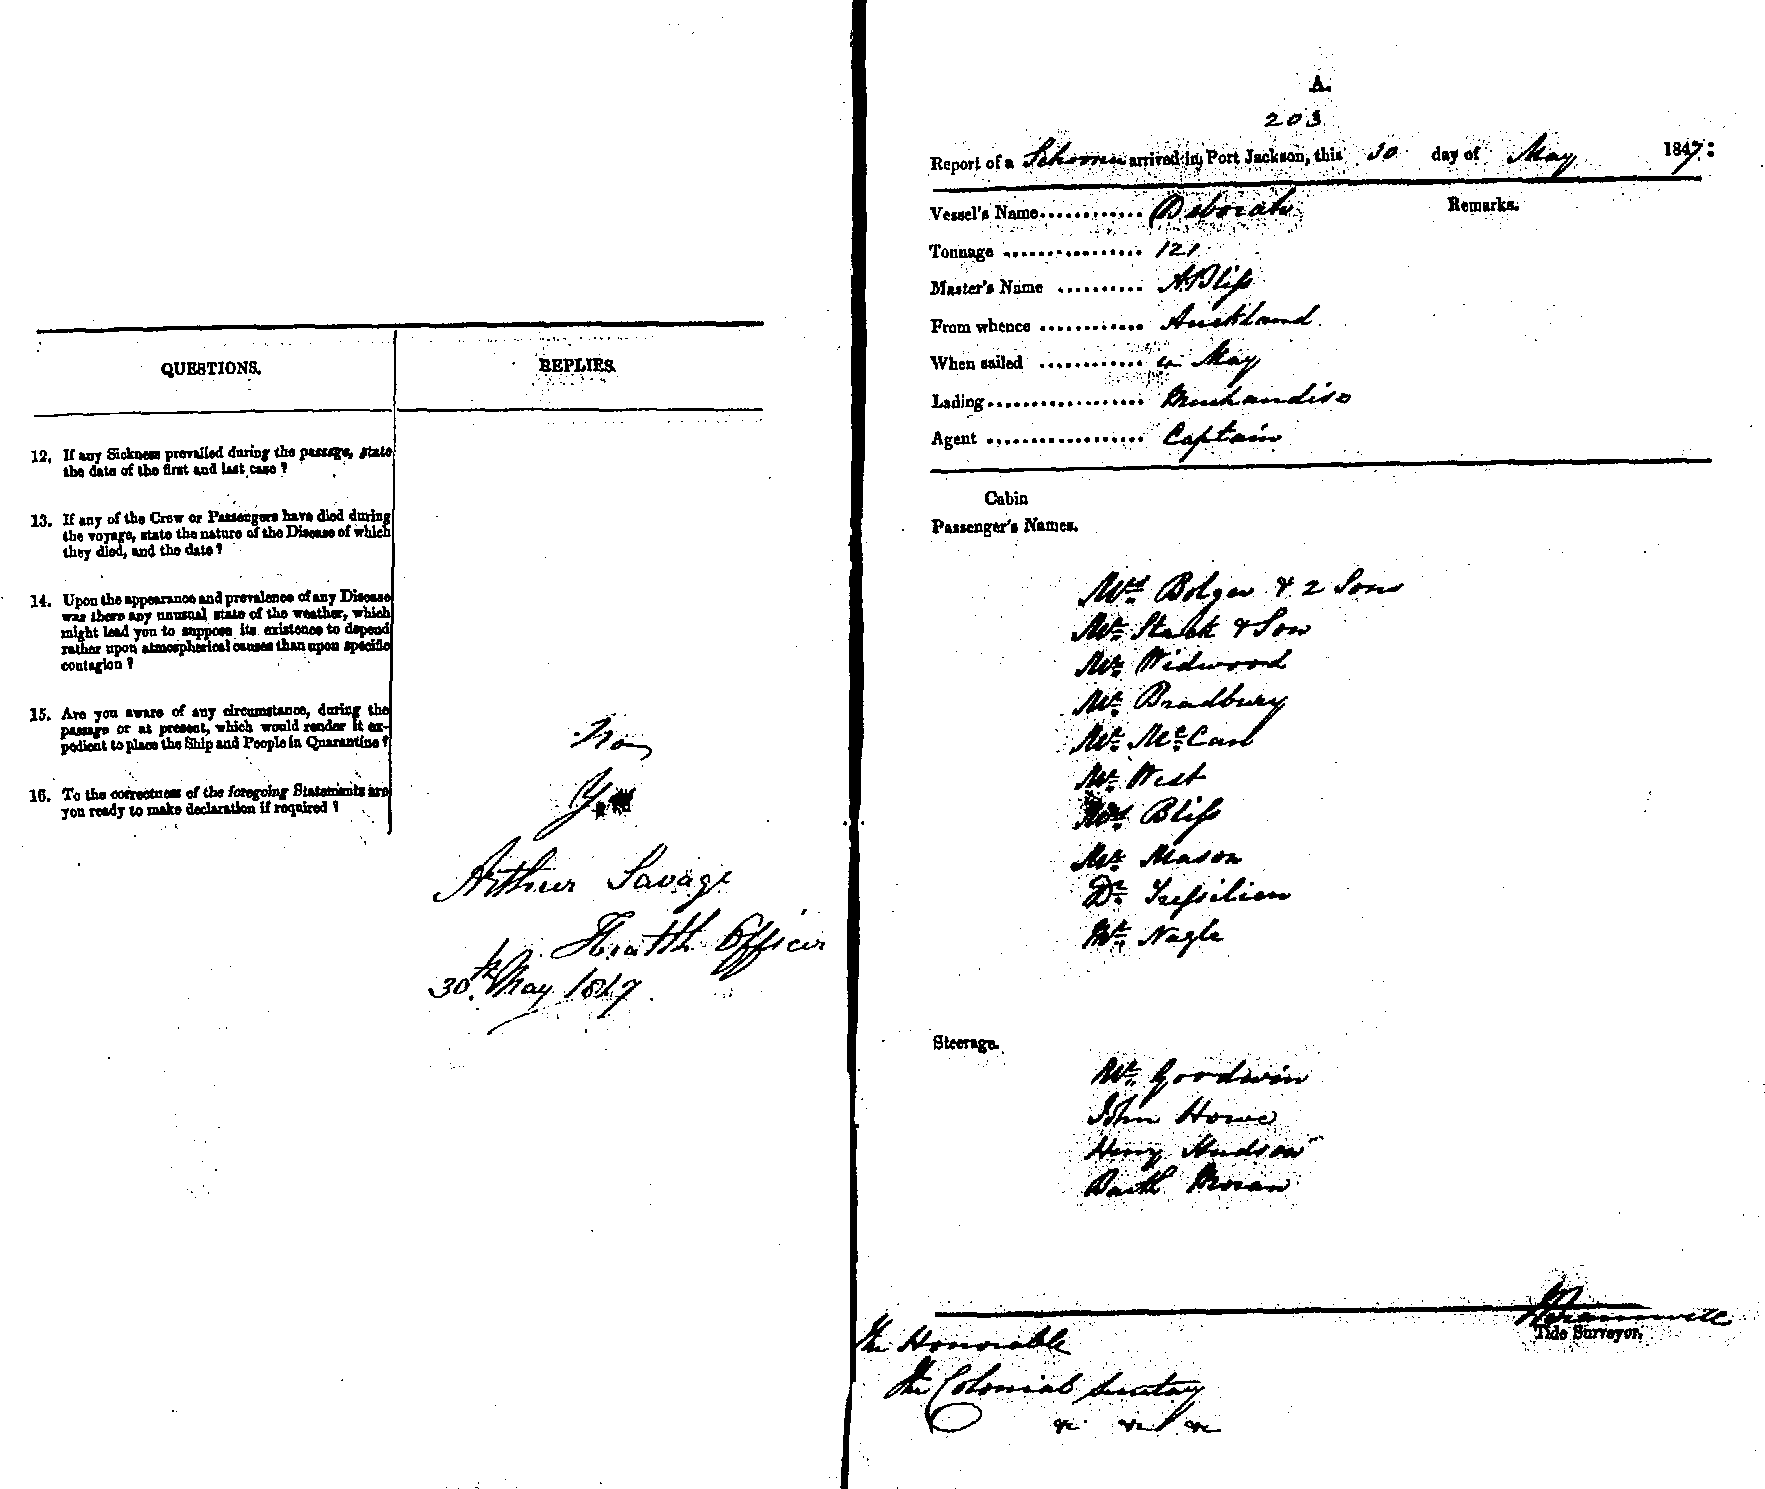 QUESTIONS.
REPLIES.
12. If any Sickness prevailed during the passage, state
the date of the first and last case?
13. If any of the Crew or Passengers have died during
the voyage, state the nature of the Disease of which
they died, and the date?
14. Upon the appearance and prevalence of any Disease
was there any unusual state of the weather, which
might lead you to suppose its existence to depend
rather upon atmospherical causes than upon specific
contagion?
15. Are you aware of any circumstance, during the
passage or at present, which would render it ex-
pedient to place the Ship and People in Quarantine?
No
16. To the correctness of the foregoing Statements are
you ready to make declaration if required?
Yes
Arthur Savage
Health Officer
30th May 1847
A.
203
Report of a Schooner arrived in Port Jackson, this 30 day of May 1847:
Vessel's Name Deborah
Remarks.
Tonnage 121
Master's Name A Bliss
From whence Auckland
When sailed May
Lading Merchandise
Agent Captain
Cabin
Passenger's Names.
Mrs Bolger & 2 Sons
Mr Stack & Son
Mr Widwood
Mr Bradbury
Mr McCan
Mr West
Mrs Bliss
Mr Mason
Dr Tressilien
Mr Nagle
Steerage.
Mr Goodwin
John Howe
Henry Hudson
Barth Moran
Tide Surveyor.
The Honorable
The Colonial Secretary
&c &c &c